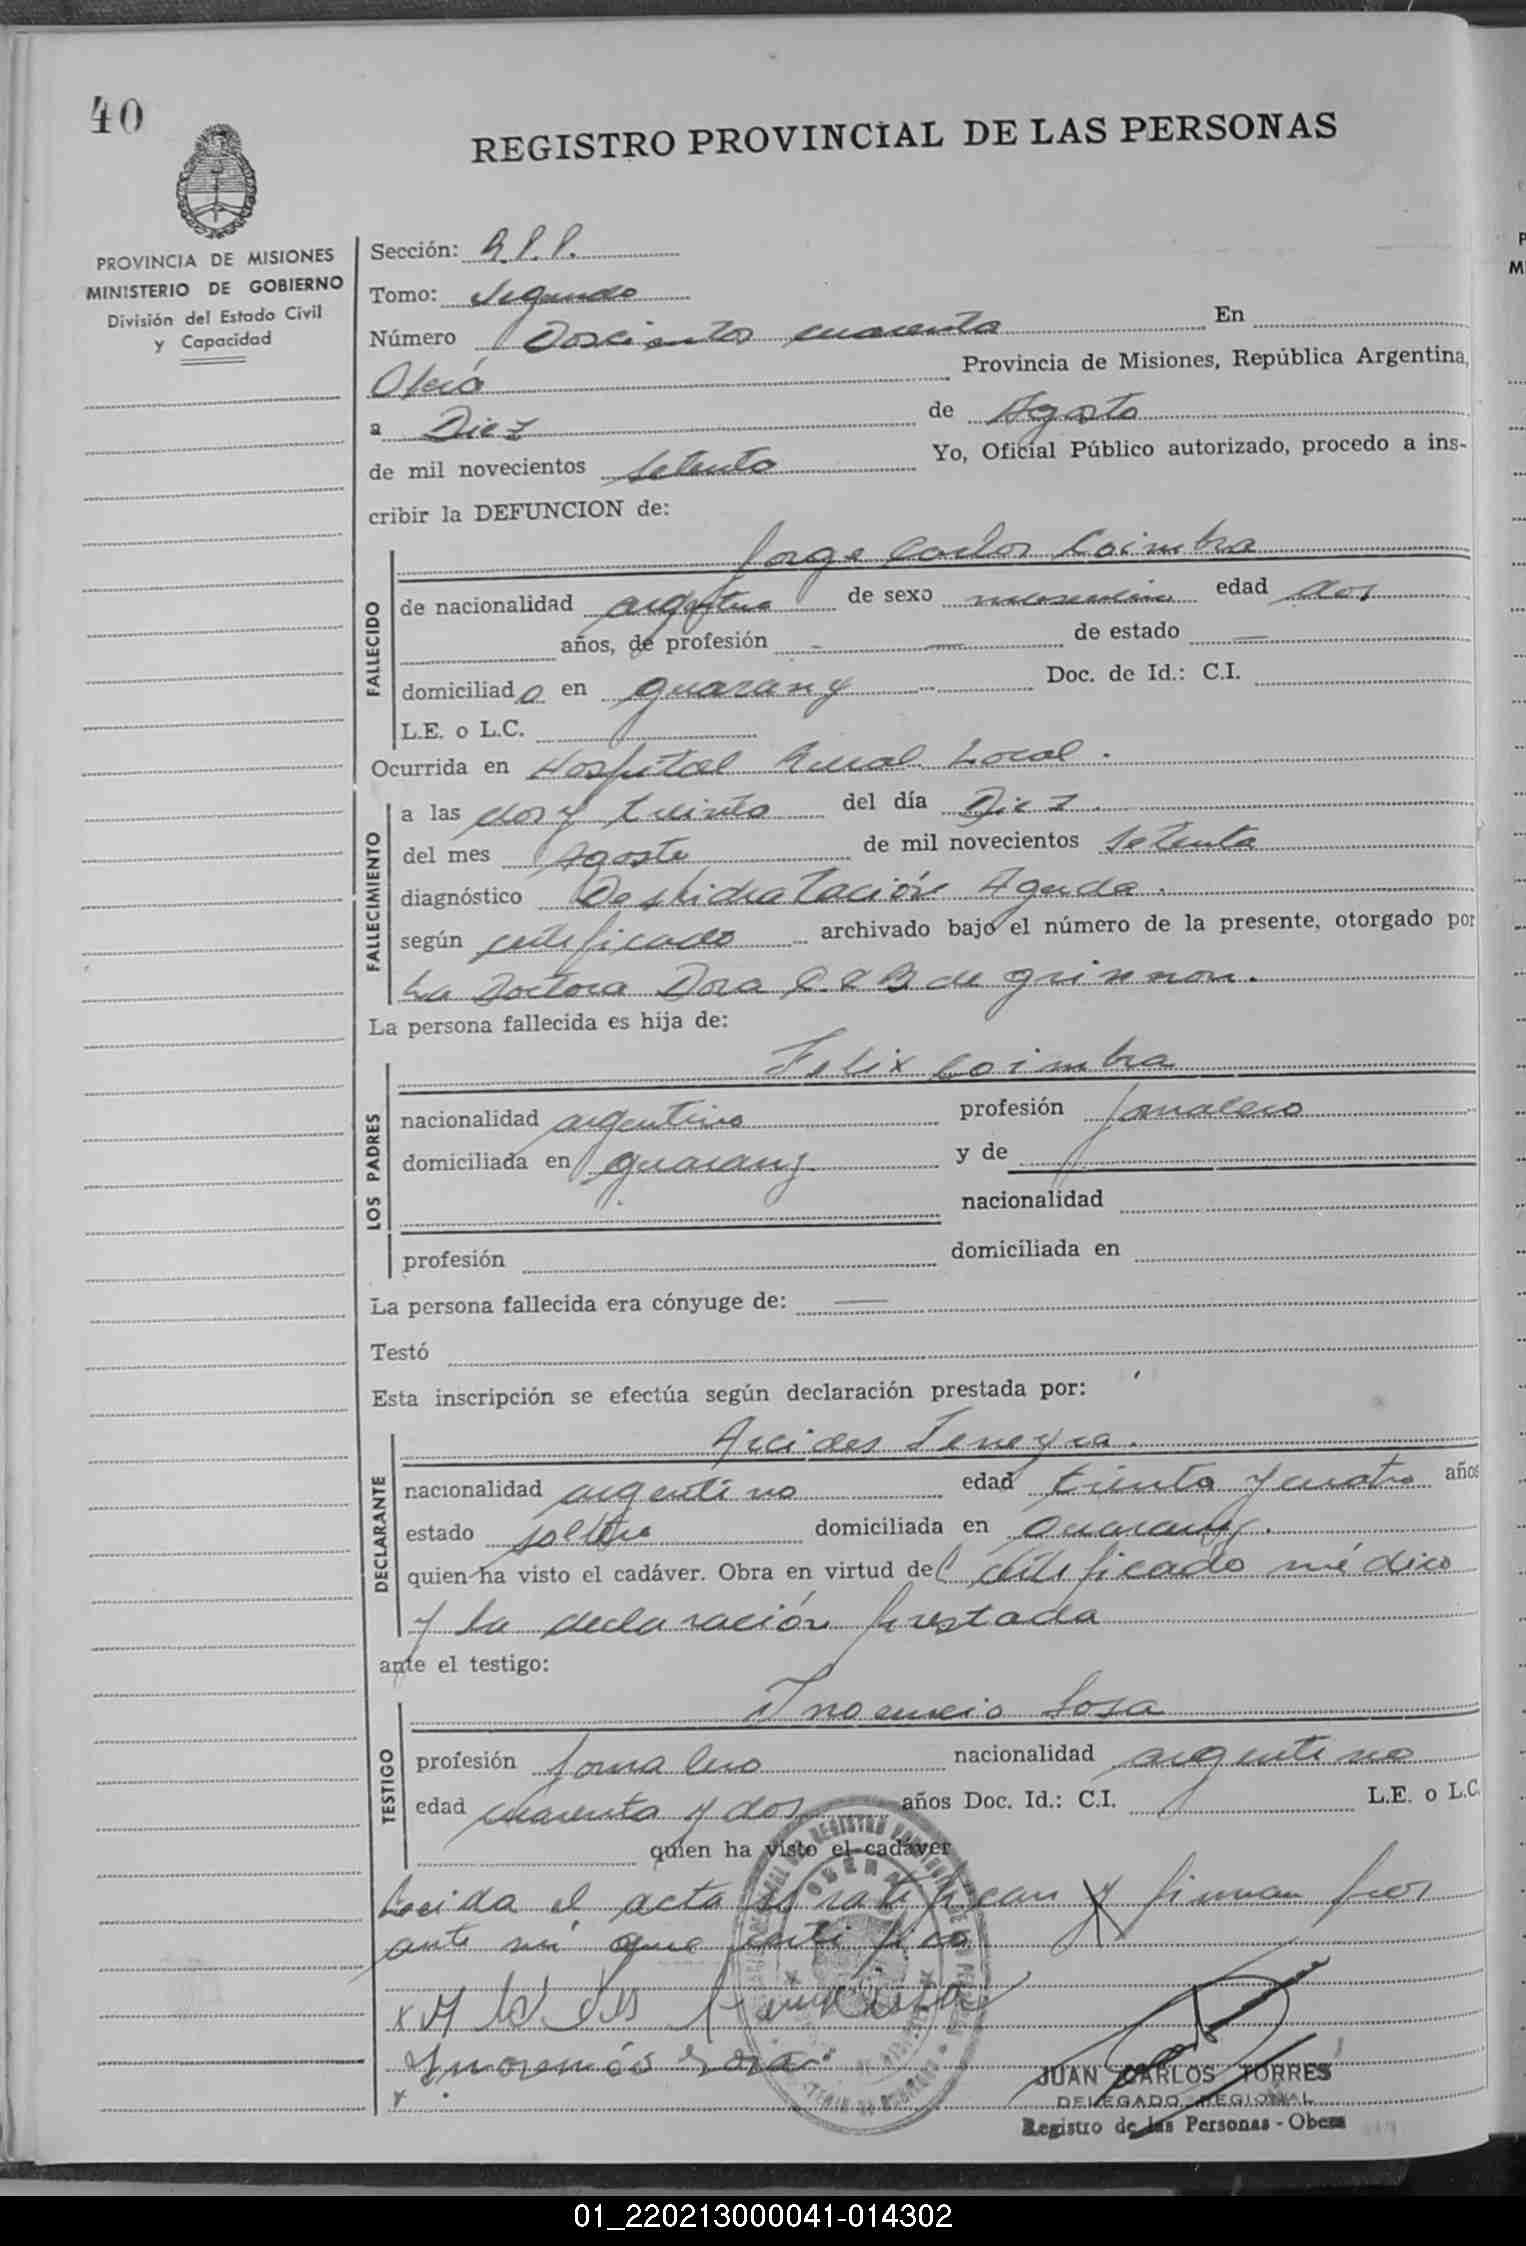 40
REGISTRO PROVINCIAL DE LAS PERSONAS
PROVINCIA DE MISIONES
MINISTERIO DE GOBIERNO
División del Estado Civil
y Capacidad
Sección: R.P.P.
Tomo: Segundo
Número Doscientos cuarenta En
Oberá Provincia de Misiones, República Argentina,
a Diez de Agosto
de mil novecientos setenta Yo, Oficial Público autorizado, procedo a ins-
cribir la DEFUNCION de:
Jorge Carlos Coimbra
FALLECIDO
de nacionalidad argentina de sexo masculino edad dos
años, de profesión — de estado —
domiciliado en guarany Doc. de Id.: C.I.
L.E. o L.C.
Ocurrida en Hospital Rural Local.
FALLECIMIENTO
a las dos y treinta del día Diez.
del mes Agosto de mil novecientos setenta
diagnóstico Deshidratación Aguda.
según certificado archivado bajo el número de la presente, otorgado por
La Doctora Dora de
La persona fallecida es hija de:
LOS PADRES
Felix Coimbra
nacionalidad argentino profesión Jornalero
domiciliada en guarany y de
nacionalidad
profesión domiciliada en
La persona fallecida era cónyuge de: —
Testó
Esta inscripción se efectúa según declaración prestada por:
DECLARANTE
nacionalidad argentino edad treinta y cuatro años
estado soltero domiciliada en Guarany.
quien ha visto el cadáver. Obra en virtud del certificado médico
y la declaración prestada
ante el testigo:
TESTIGO
Inocencio Sosa
profesión Jornalero nacionalidad argentino
edad cuarenta y dos años Doc. Id.: C.I. L.E. o L.C.
quien ha visto el cadáver
Leida el acta se ratifican y firman por
ante mi que certifico
OBERA
JUAN CARLOS TORRES
DELEGADO REGIONAL
Registro de las Personas - Obera
01_220213000041-014302